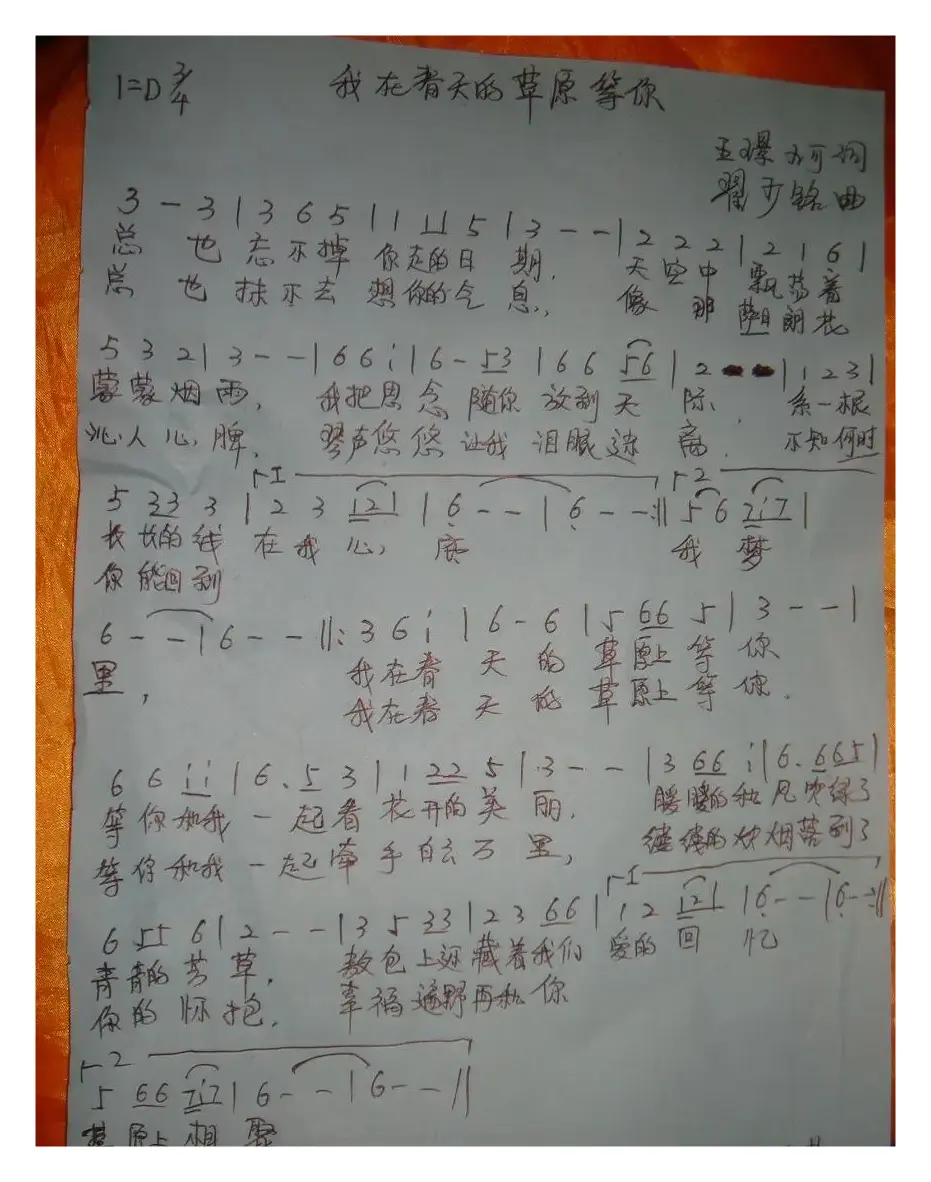 1=D 3/4 我在春天的草原等你
王璟 词
翟少铭曲
3 - 3 | 3 6 5 | 1 11 5 | 3 - - | 2 2 2 | 2 1 6 |
总也忘不掉你走的日期, 天空中飘荡着
总也抹不去想你的气息, 像那萨日朗花
5 3 2 | 3 - - | 6 6 i | 6 - 53 | 6 6 56 | 2 - - | 1 2 3 |
蒙蒙烟雨, 我把思念随你放到天际, 系一根
沁人心脾, 琴声悠悠让我泪眼迷离 不知何时
Γ I Γ 2
5 33 3 | 2 3 121 | 6 - - | 6 - - :‖ 5 6 7i7 |
长长的线在我心底 我梦
你能回到
6 - - | 6 - - ‖: 3 6 i | 6 - 6 | 5 66 5 | 3 - - |
里, 我在春天的草原上等你
我在春天的草原上等你.
6 6 ii | 6. 5 3 | 1 22 5 | 3 - - | 3 66 i | 6. 665 |
等你和我一起看花开的美丽, 暖暖的和风吹绿了
等你和我一起牵手白云万里, 缕缕的炊烟落到了
Γ I
6 55 6 | 2 - - | 3 5 33 | 2 3 66 | 1 2 121 | 6 - - | 6 - - :‖
青青的芳草, 敖包上还藏着我们爱的回忆
你的怀抱, 幸福遍野再和你
Γ 2
5 66 7i7 | 6 - - | 6 - - ‖
草原上相聚